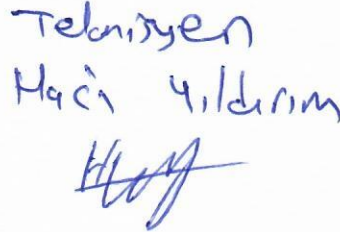 Teknisyen
Hacı Yıldırım